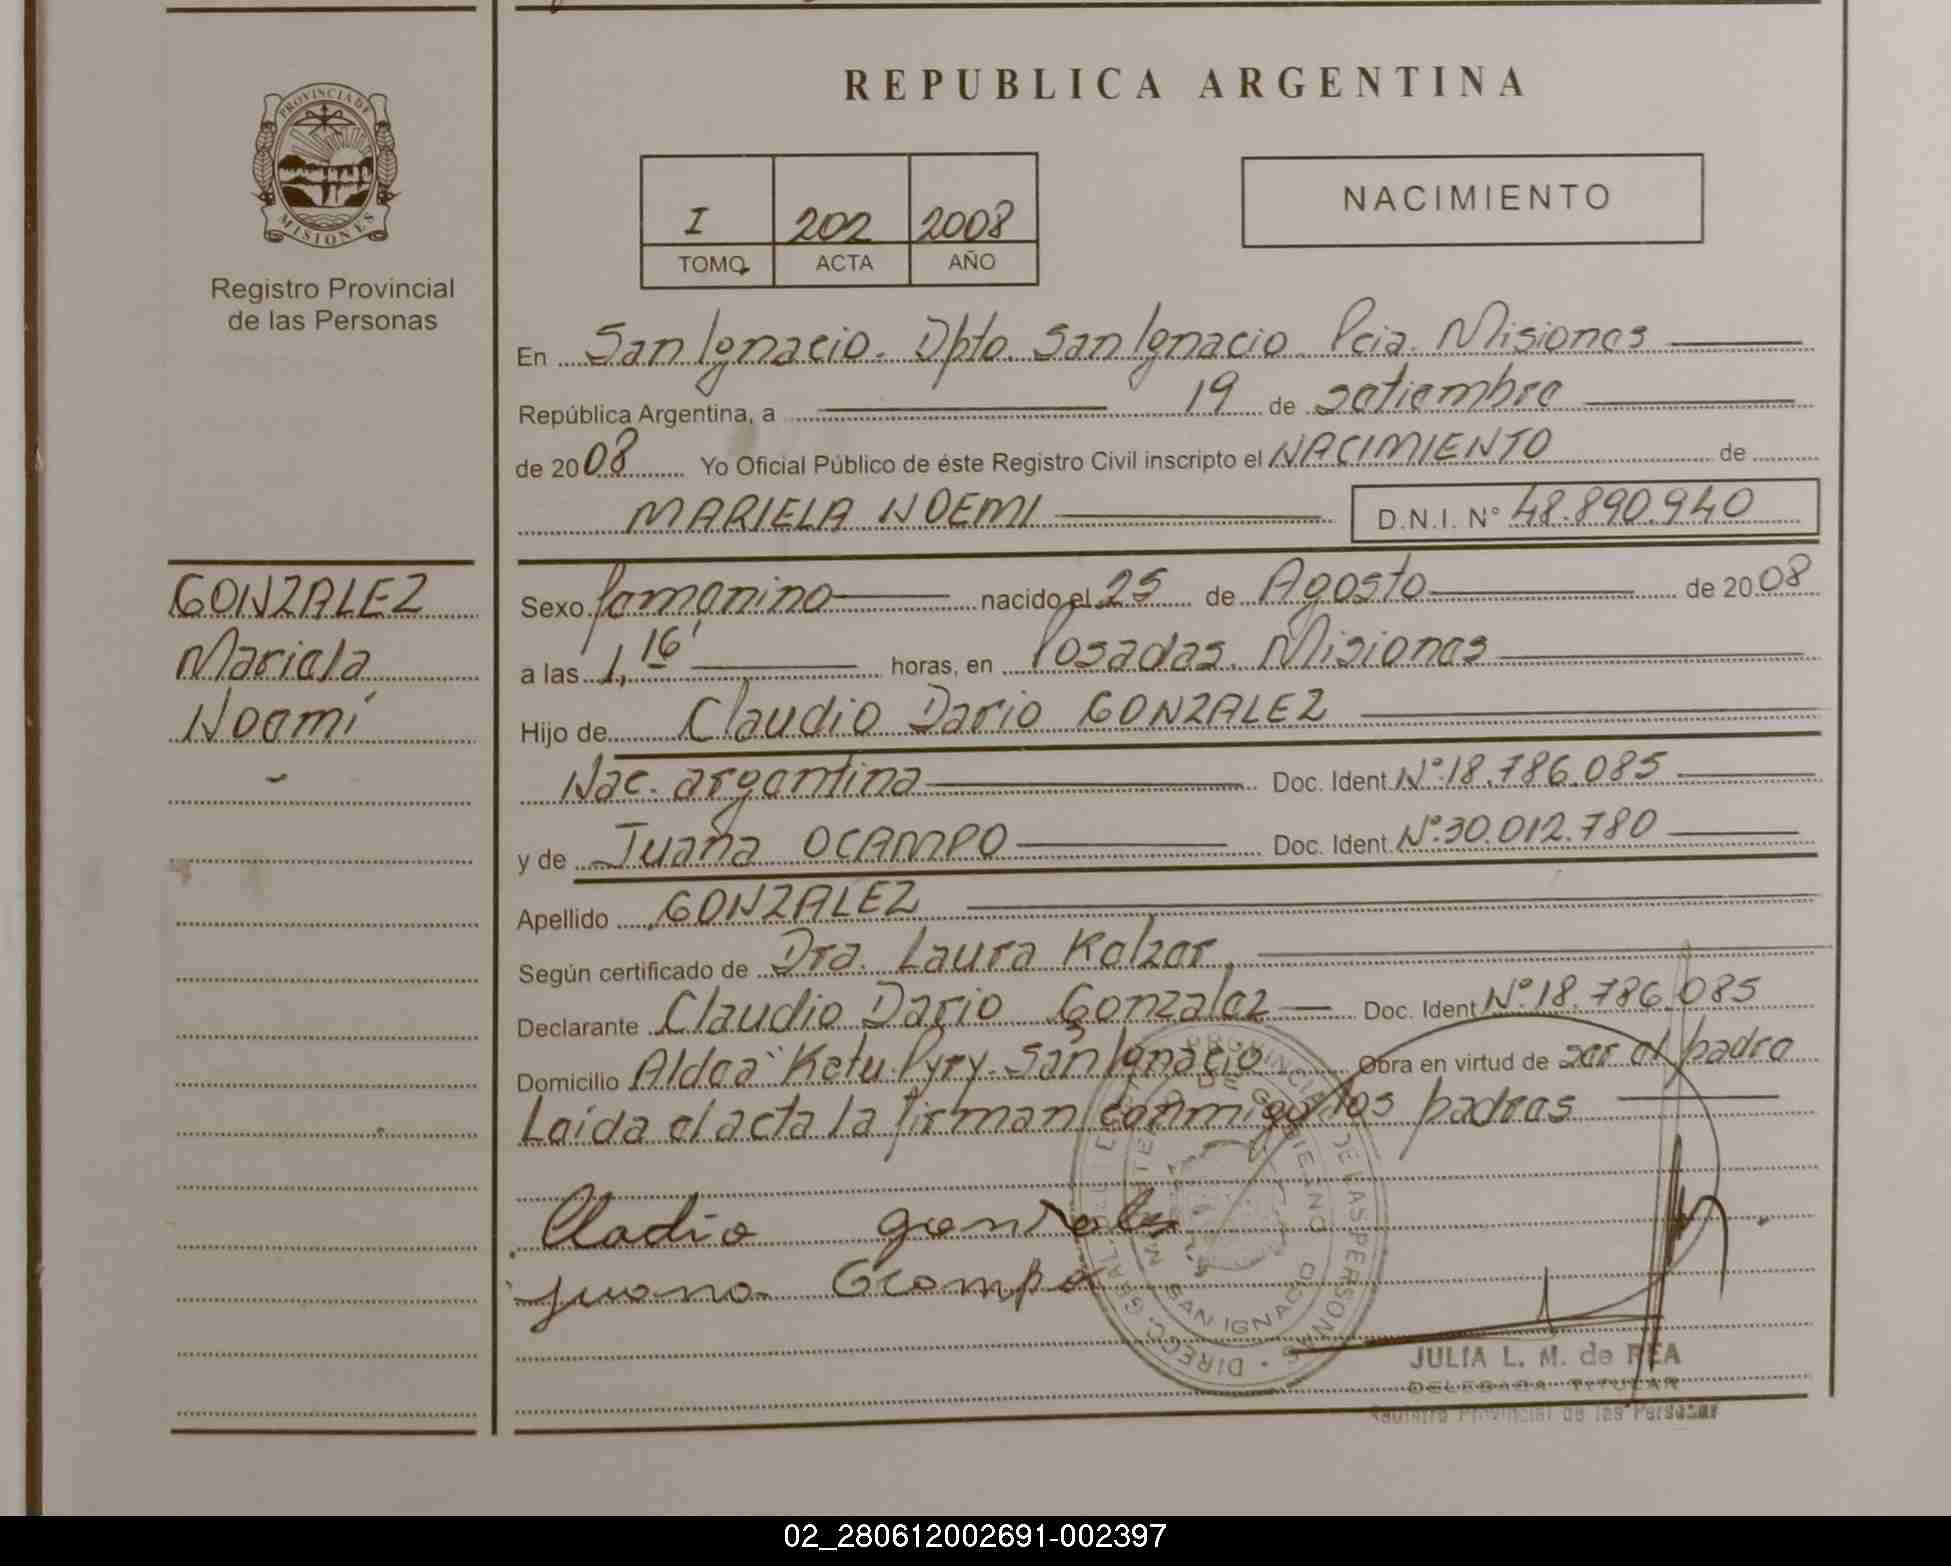 REPUBLICA ARGENTINA
PROVINCIA DE
MISIONES
Registro Provincial
de las Personas
I 202 2008
TOMO ACTA AÑO
NACIMIENTO
En San Ignacio. Dpto. San Ignacio. Pcia. Misiones
República Argentina, a 19 de setiembre
de 2008 Yo Oficial Público de éste Registro Civil inscripto el NACIMIENTO de
MARIELA NOEMI D.N.I. N° 48.890.940
GONZALEZ
Mariela
Noemí
Sexo femenino nacido el 25 de Agosto de 2008
a las 1,16' horas, en Posadas. Misiones
Hijo de Claudio Dario GONZALEZ
Nac. argentina Doc. Ident. N°.18.786.085
y de Juana OCAMPO Doc. Ident. N°.30.012.780
Apellido GONZALEZ
Según certificado de Dra. Laura Kelzer,
Declarante Claudio Dario Gonzalez Doc. Ident N°.18.786.085
Domicilio Aldea Katu Pyry. San Ignacio Obra en virtud de ser el padre
Leída el acta la firman conmigo los padres
Cladio gonzalez
juana Ocampo
DIRECC. GRAL. PROVINCIAL DE LAS PERSONAS
MINISTERIO DE GOBIERNO
SAN IGNACIO
JULIA L. M. de REA
DELEGADA TITULAR
Registro Provincial de las Personas
02_280612002691-002397